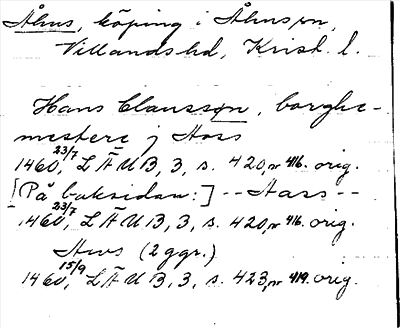 Åhus, köping i Åhus sn,
Villands hd, Krist. l.
Hans Claussøn, borghe-
mestere j Hoss
1460 23/7, LÄUB, 3, s. 420, nr 416. orig.
[På baksidan:] -- Hass --
1460 23/7, LÄUB, 3, s. 420, nr 416. orig.
Hws (2 ggr.)
1460 15/9, LÄUB, 3, s. 423, nr 419. orig.